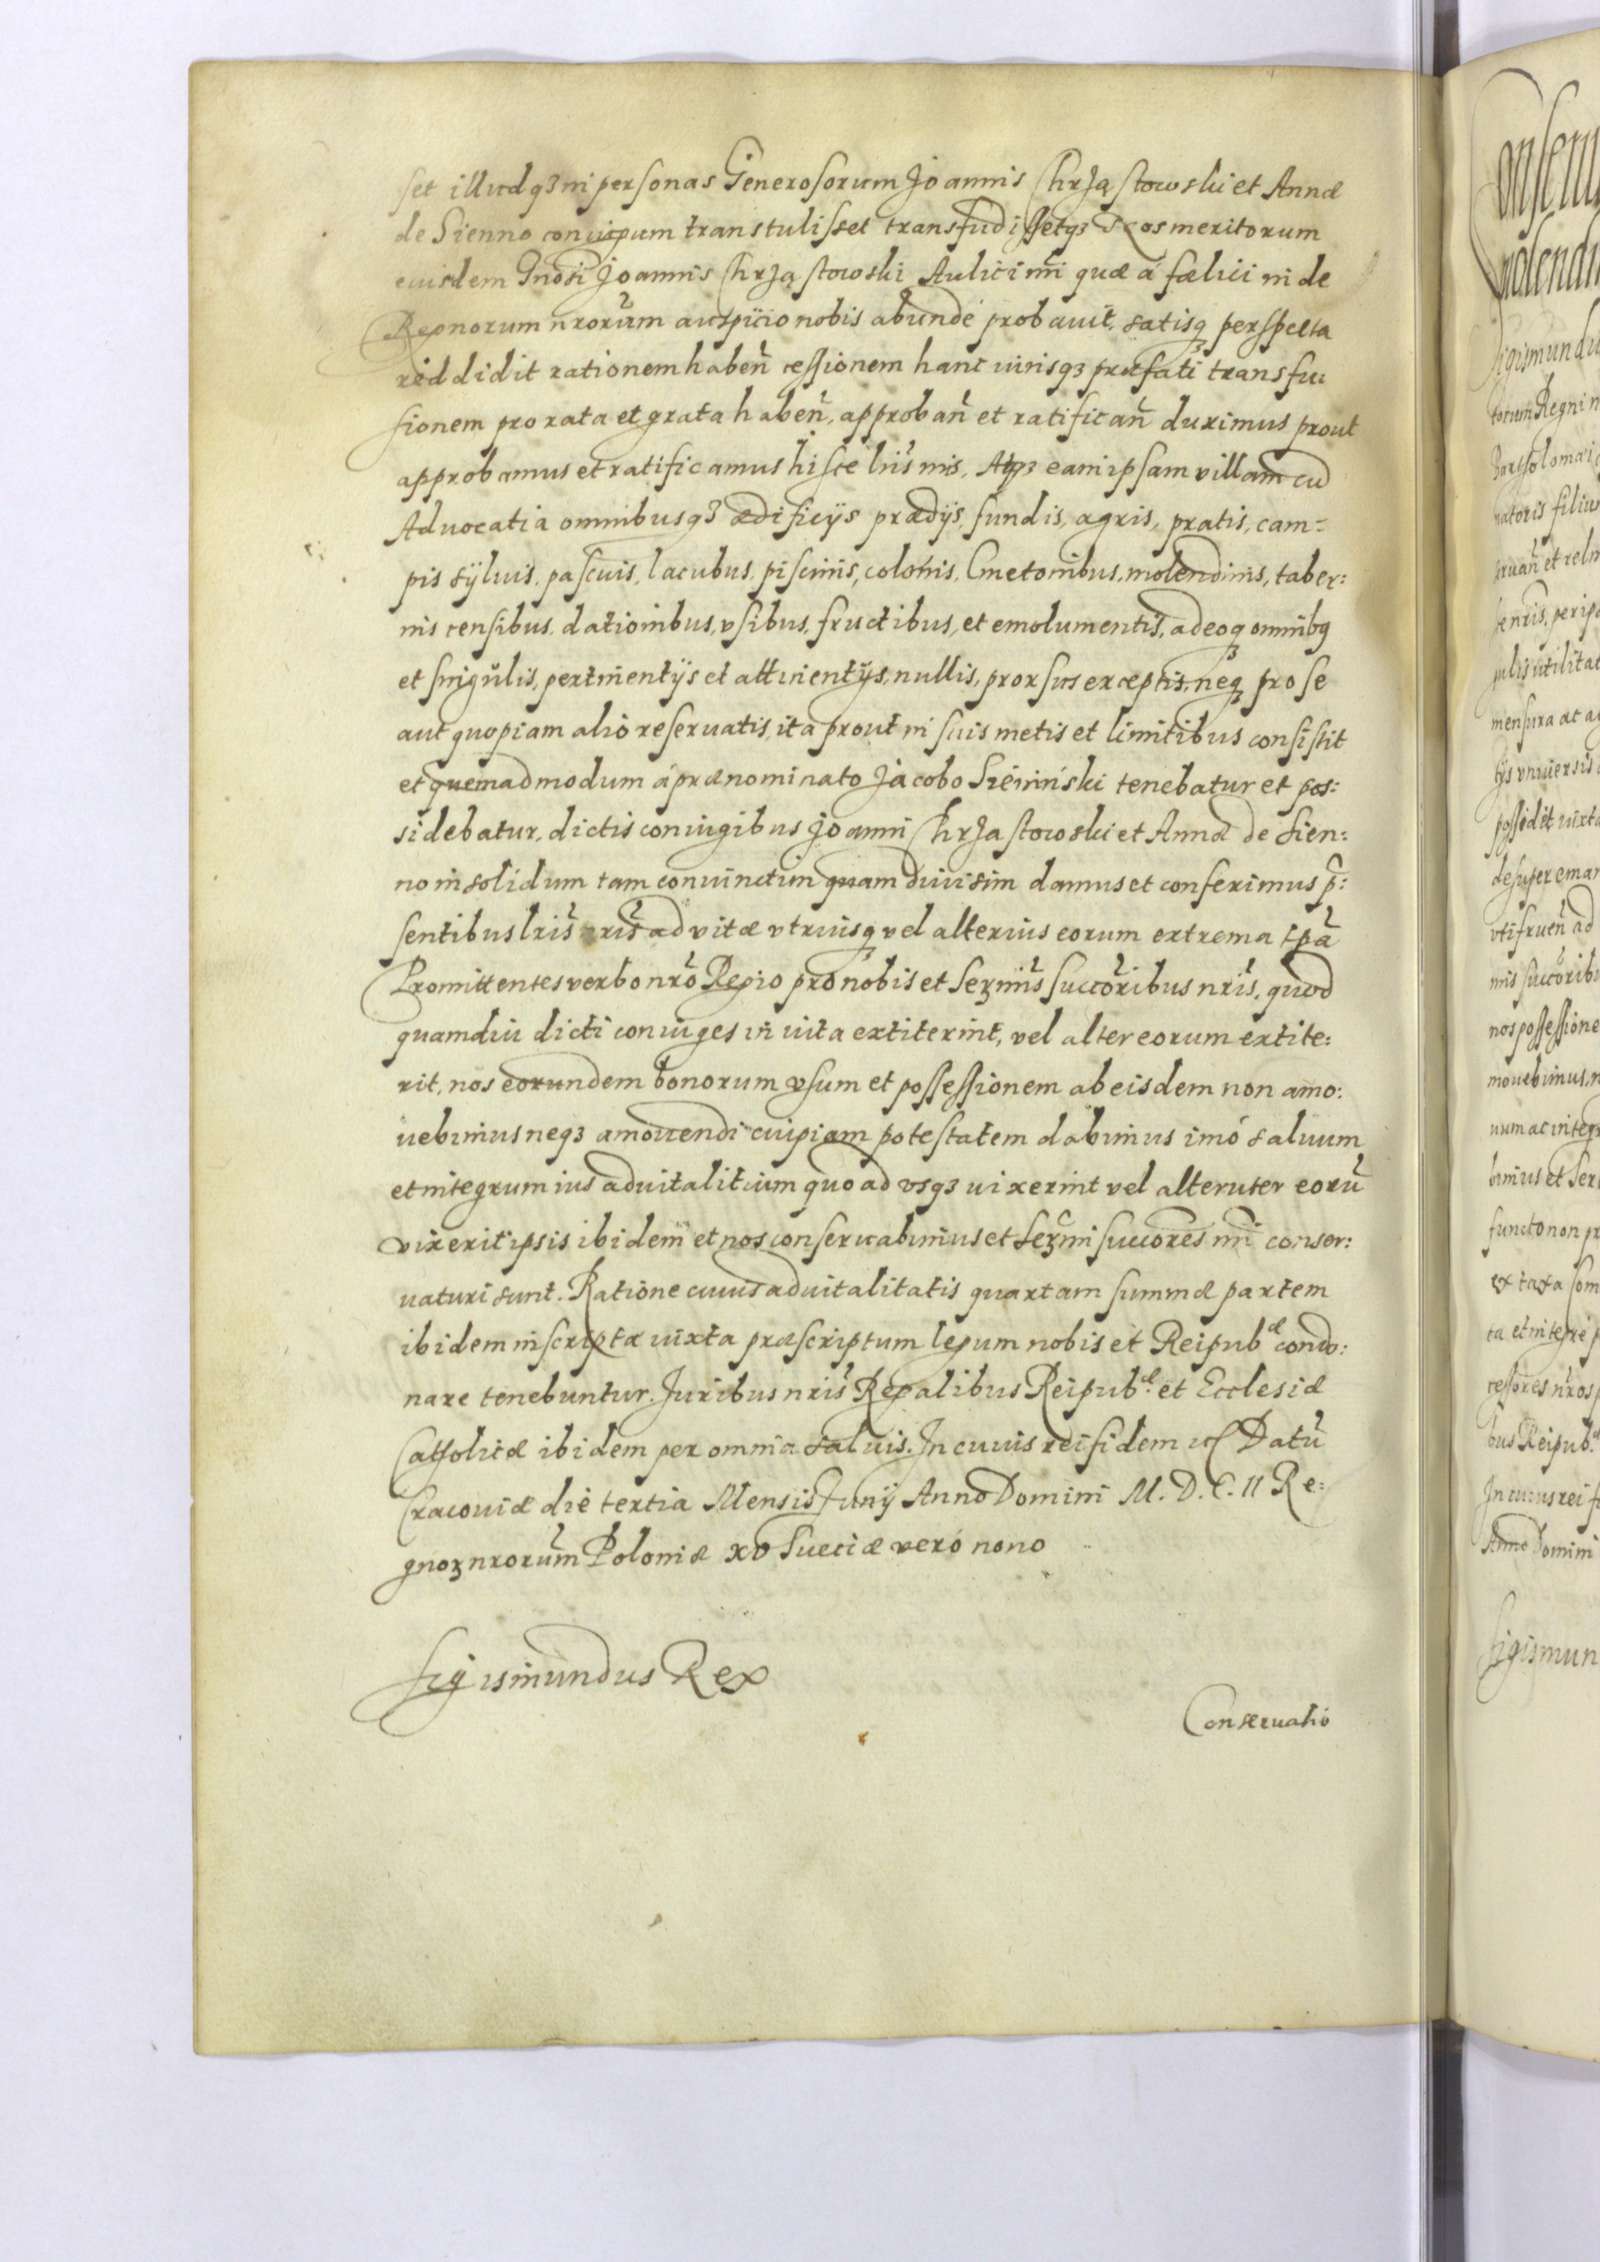 set illudq3 in personas Generosorum Joannis Chrząstowski et Annæ
de Sienno coniugum transtulisset transfudissetq3 Nos meritorum
eiusdem Gnosi Joannis Chrząstowski Aulici nri quæ á fœlici inde
Regnorum nrorum auspicio nobis abundé probauit, satisq3 perspecta
reddidit rationem haben̄ cessionem hanc iurisq3 præfati transfu
sionem pro rata et grata haben̄, approban̄ et ratifican̄ duximus prout
approbamus et ratificamus hisce lris nris, Atq3 eam ipsam villam cū
Aduocatia omnibusq3 ædificijs prædijs, fundis, agris, pratis, cam=
pis syluis, pascuis, lacubus, piscinis, colonis, Cmetonibus, molendinis, taber:
nis censibus, dationibus, vsibus, fructibus, et emolumentis, adeoq3 omnibq
et singulis, pertinentijs et attinentijs, nullis, prorsus exceptis, neq3 pro se
aut quopiam alio reseruatis, ita prout in suis metis et limitibus consistit
et quemadmodum á prænominato Jacobo Sieninski tenebatur et pos:
sidebatur, dictis coniugibus Joanni Chrząstowski et Annæ de Sien:
no in solidum tam coniunctim quam diuisim damus et conferimus p̄:
sentibus lris nris ad vitæ vtriusq3 vel alterius eorum extrema tpa
Promittentes verbo nro Regio pro nobis et Serm̄is succoribus nris, quod
quamdiu dicti coniuges in vita extiterint, vel alter eorum extite:
rit, nos eorundem bonorum vsum et possessionem ab eisdem non amo:
uebimus neq3 amouendi cuipiam potestatem dabimus imó saluum
et integrum ius aduitalitium quoad vsq3 uixerint vel alteruter eorū
vixerit ipsis ibidem et nos conseruabimus et Serm̄i succores nri conser:
uaturi sunt. Ratione cuius aduitalitatis quartam summæ partem
ibidem inscriptæ iuxta præscriptum legum nobis et Reipubæ condo:
nare tenebuntur. Juribus nris Regalibus Reipubæ. et Ecclesiæ
Catholicæ ibidem per omnia saluis. In cuius rei fidem Datū
Cracouiæ die tertia Mensis Junij Anno Domini M. D. C. II Re:
gnor3 nrorum Poloniæ xv Sueciæ veró nono
Sigismundus Rex
Conseruatio
onsens
molendi
Sigismundu
torum Regni n
Bartholomæi
natoris filiu
mensura ac
tijs vniuersis
possedit iuxta
desuper eman
vtifruen̄ ad
nis succorib
nos possessione
mouebimus, n
uum ac integr
bimus et Ser
functo non pr
ta et integré p
cessores nros
bus Reipubæ
In cuius rei f
Anno Domini
Sigismun